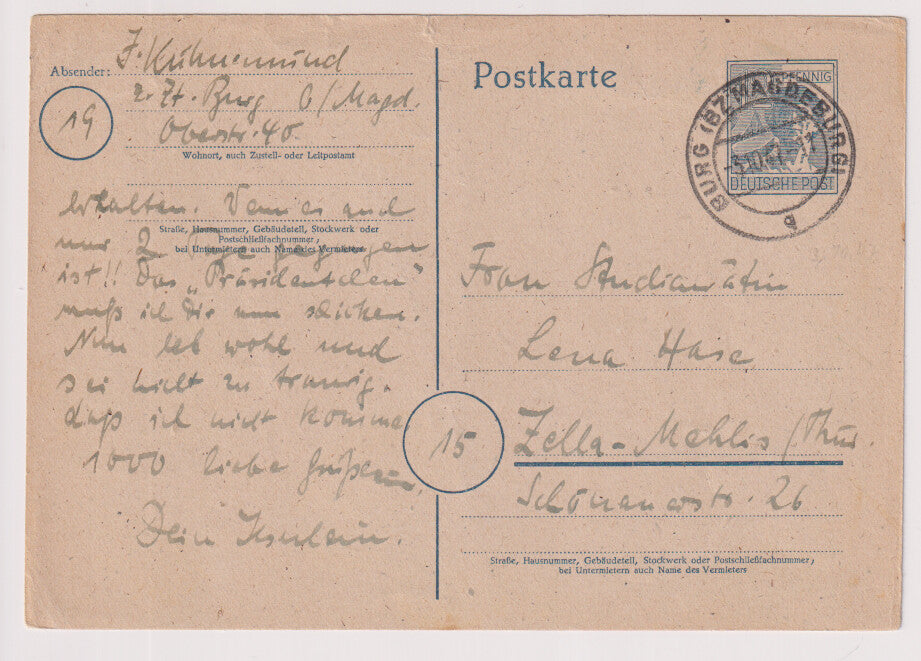 Absender: J. Kühnemund
z. Zt. Burg b/Magd.
19
Oberstr. 40
Wohnort, auch Zustell- oder Leitpostamt
erhalten. Wenn es auch
Straße, Hausnummer, Gebäudeteil, Stockwerk oder
Postschließfachnummer;
bei Untermietern auch Name des Vermieters
nur 2 Tage gegangen
ist!! Das „Präsidentchen"
muß ich Dir nun schicken.
Nun leb wohl und
sei nicht zu traurig,
daß ich nicht komme
1000 liebe Grüße
Dein
Postkarte
PFENNIG
DEUTSCHE POST
BURG (BZ MAGDEBURG)
a
Frau Studienrätin
Lena Hase
15
Zella-Mehlis/Thür.
Schönauerstr. 26
Straße, Hausnummer, Gebäudeteil, Stockwerk oder Postschließfachnummer;
bei Untermietern auch Name des Vermieters